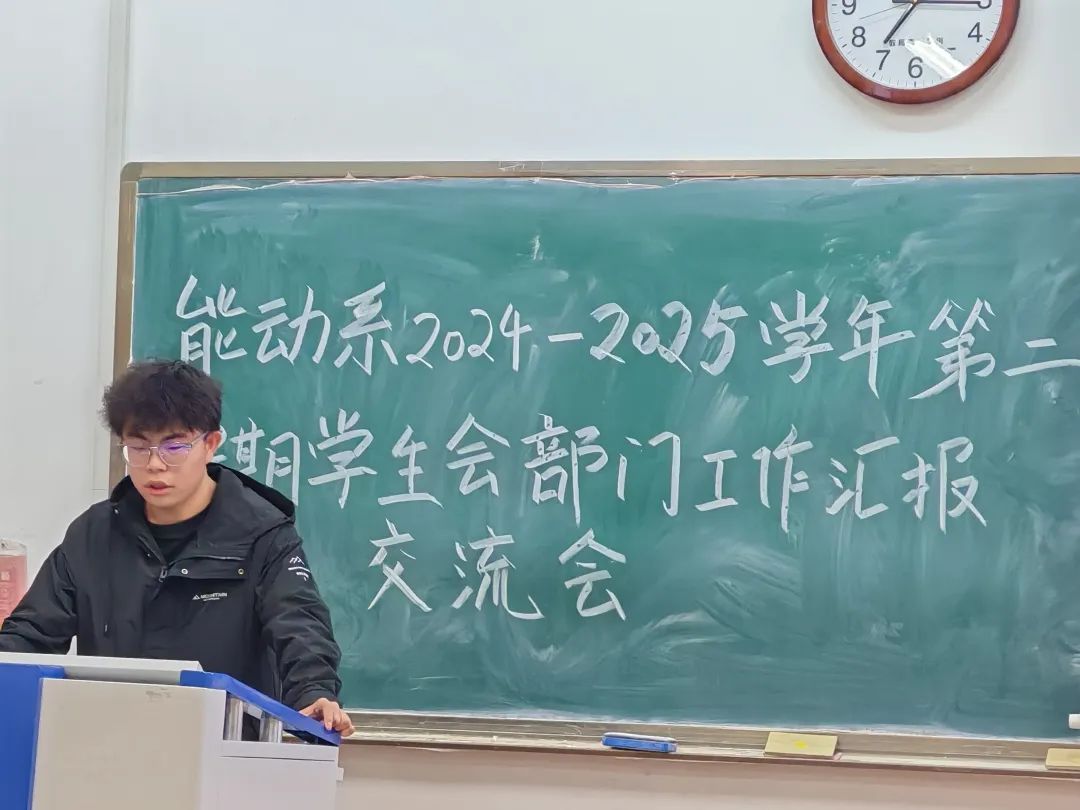 9
3
8
4
7
6
能动系2024-2025学年第二
期学生会部门工作汇报
交流会